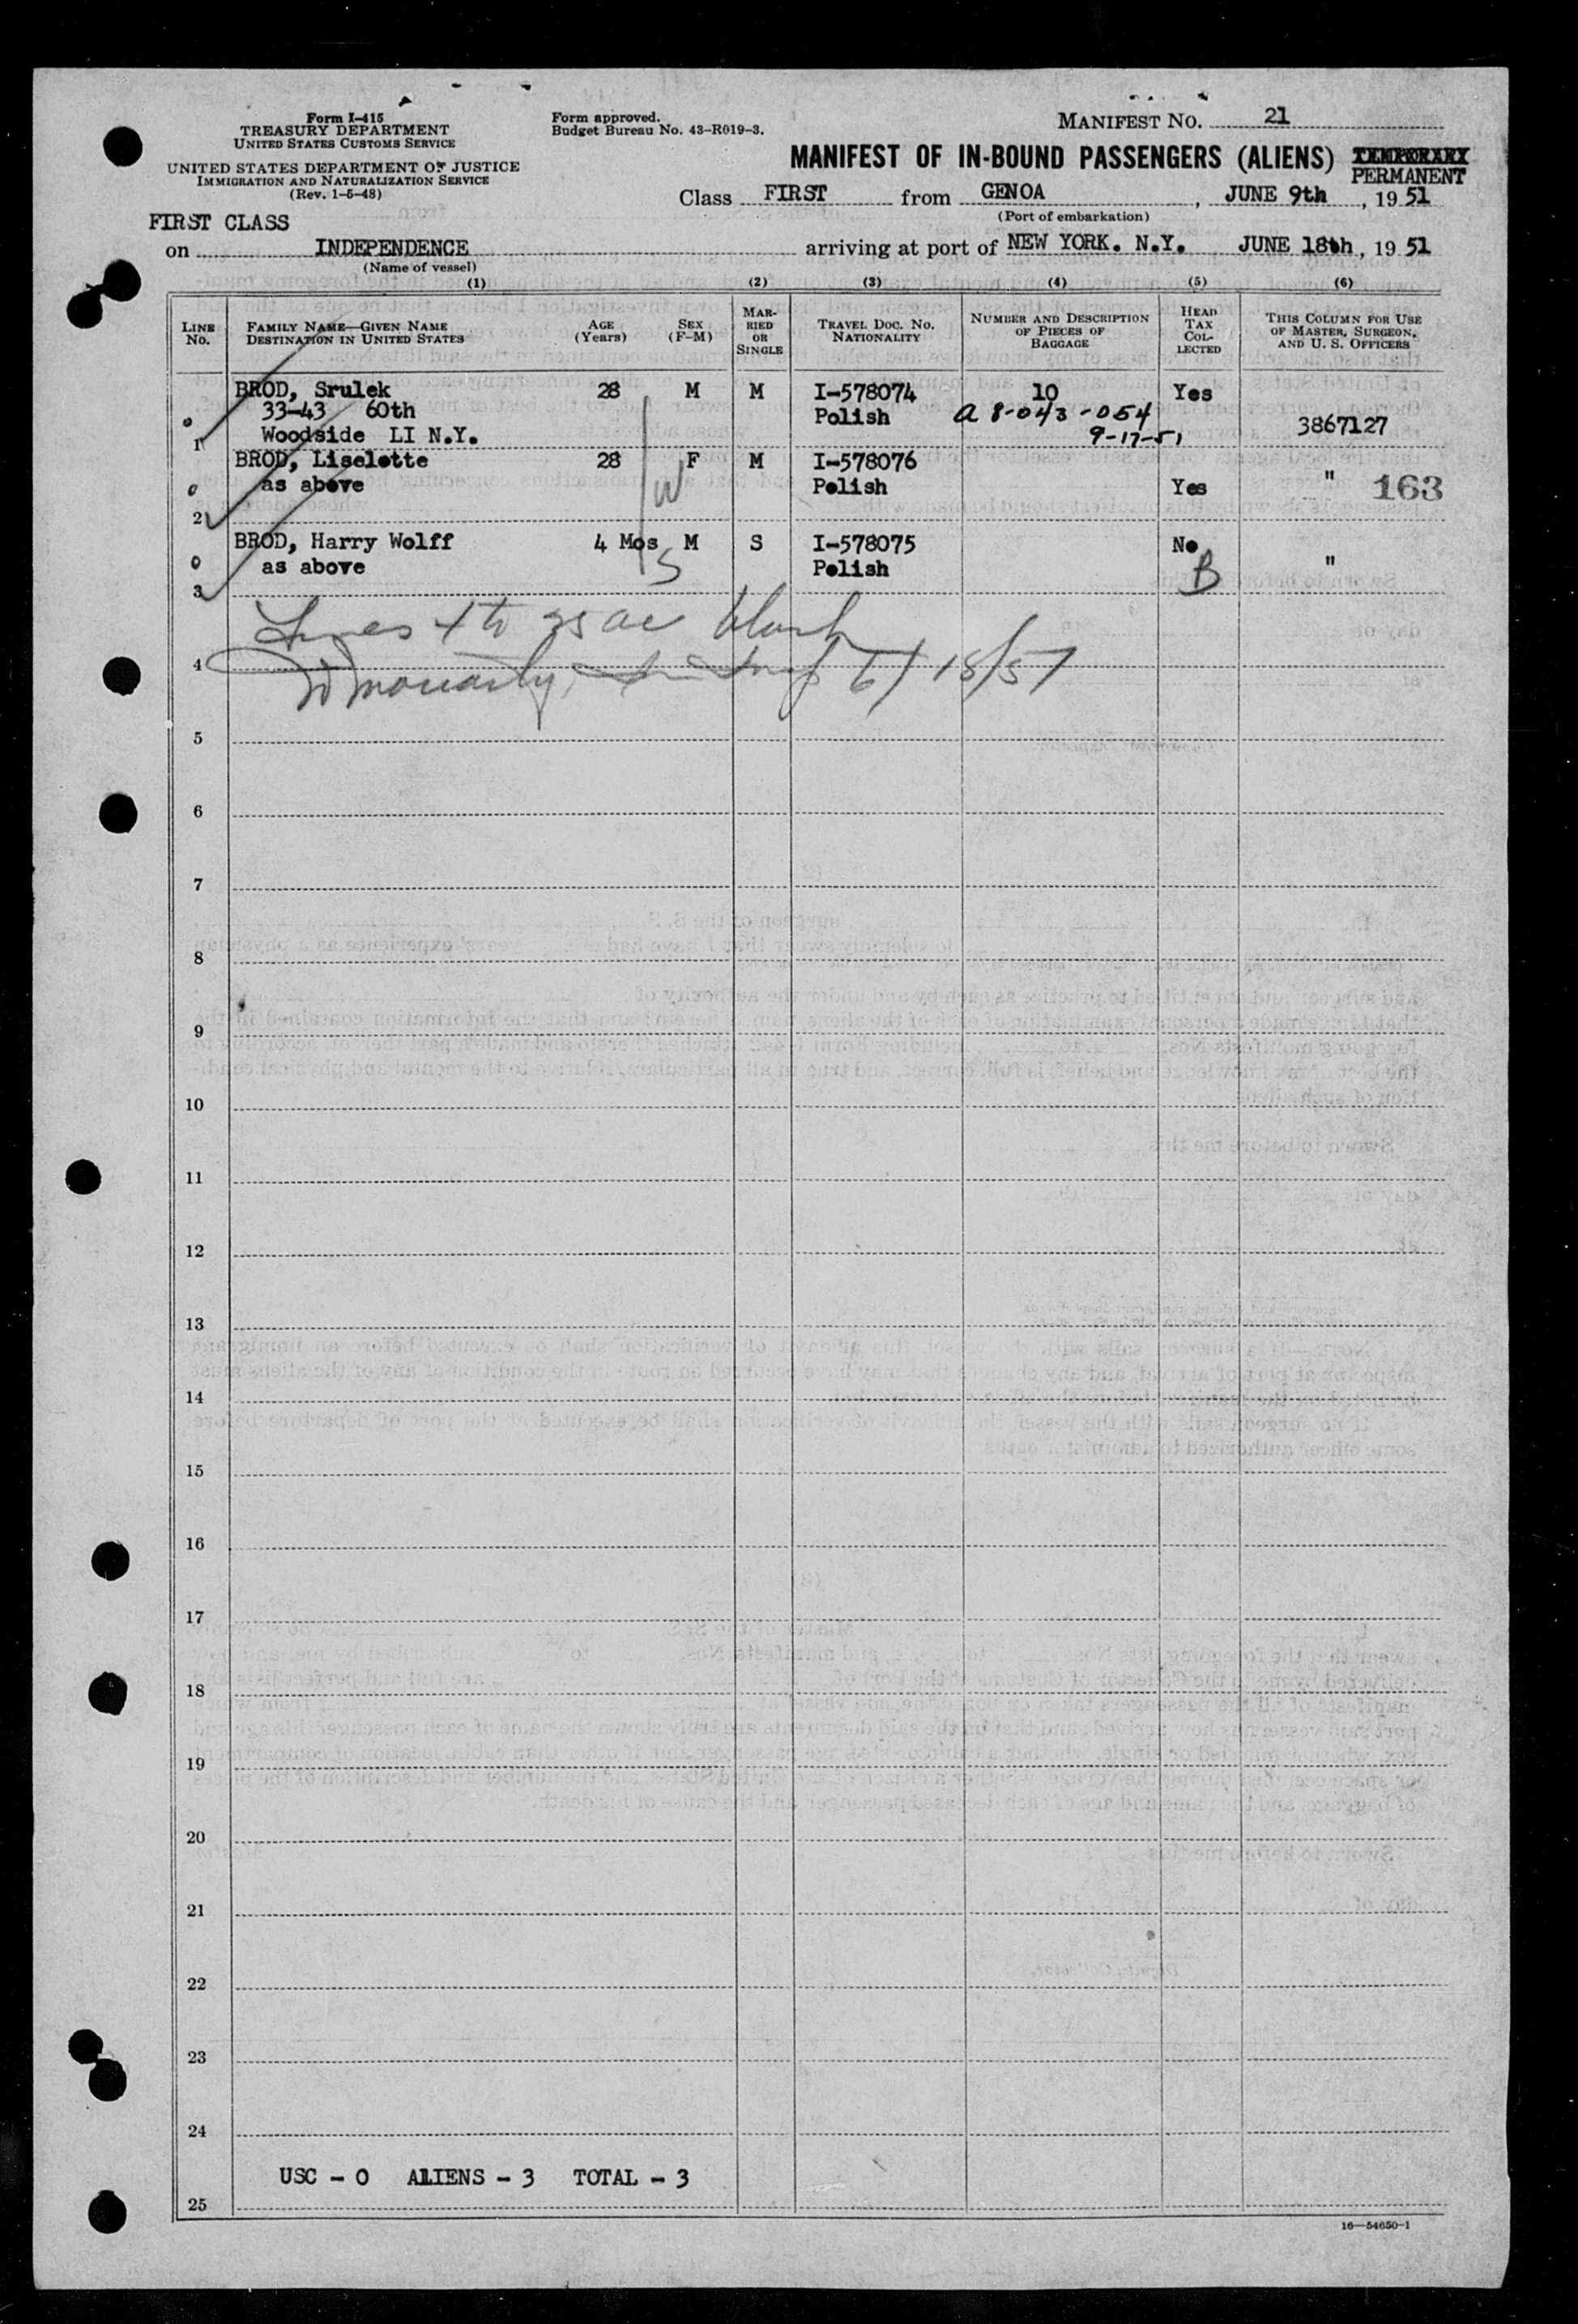 Form I-415
TREASURY DEPARTMENT
UNITED STATES CUSTOMS SERVICE
UNITED STATES DEPARTMENT OF JUSTICE
IMMIGRATION AND NATURALIZATION SERVICE
(Rev. 1-5-48)
Form approved.
Budget Bureau No. 43-R019-3.
MANIFEST NO. 21
MANIFEST OF IN-BOUND PASSENGERS (ALIENS) TEMPORARY
PERMANENT
Class FIRST from GENOA, JUNE 9th, 1951
(Port of embarkation)
FIRST CLASS
on INDEPENDENCE arriving at port of NEW YORK. N.Y. JUNE 18th, 1951
(Name of vessel)
(1) (2) (3) (4) (5) (6)
LINE No. FAMILY NAME—GIVEN NAME DESTINATION IN UNITED STATES AGE (Years) SEX (F-M) MARRIED OR SINGLE TRAVEL DOC. NO. NATIONALITY NUMBER AND DESCRIPTION OF PIECES OF BAGGAGE HEAD TAX COLLECTED THIS COLUMN FOR USE OF MASTER, SURGEON, AND U. S. OFFICERS
BROD, Srulek 28 M M I-578074 10 Yes
33-43 60th Polish a 8-043-054
1 Woodside LI N.Y. 9-17-51 3867127
BROD, Liselotte 28 F M I-578076
as above W Polish Yes " 163
2
BROD, Harry Wolff 4 Mos M S I-578075 No
as above S Polish B "
3
Lines 4 to 25 are blank
4
6/18/51
5
6
7
8
9
10
11
12
13
14
15
16
17
18
19
20
21
22
23
24
USC - 0 ALIENS - 3 TOTAL - 3
25
16—54650-1